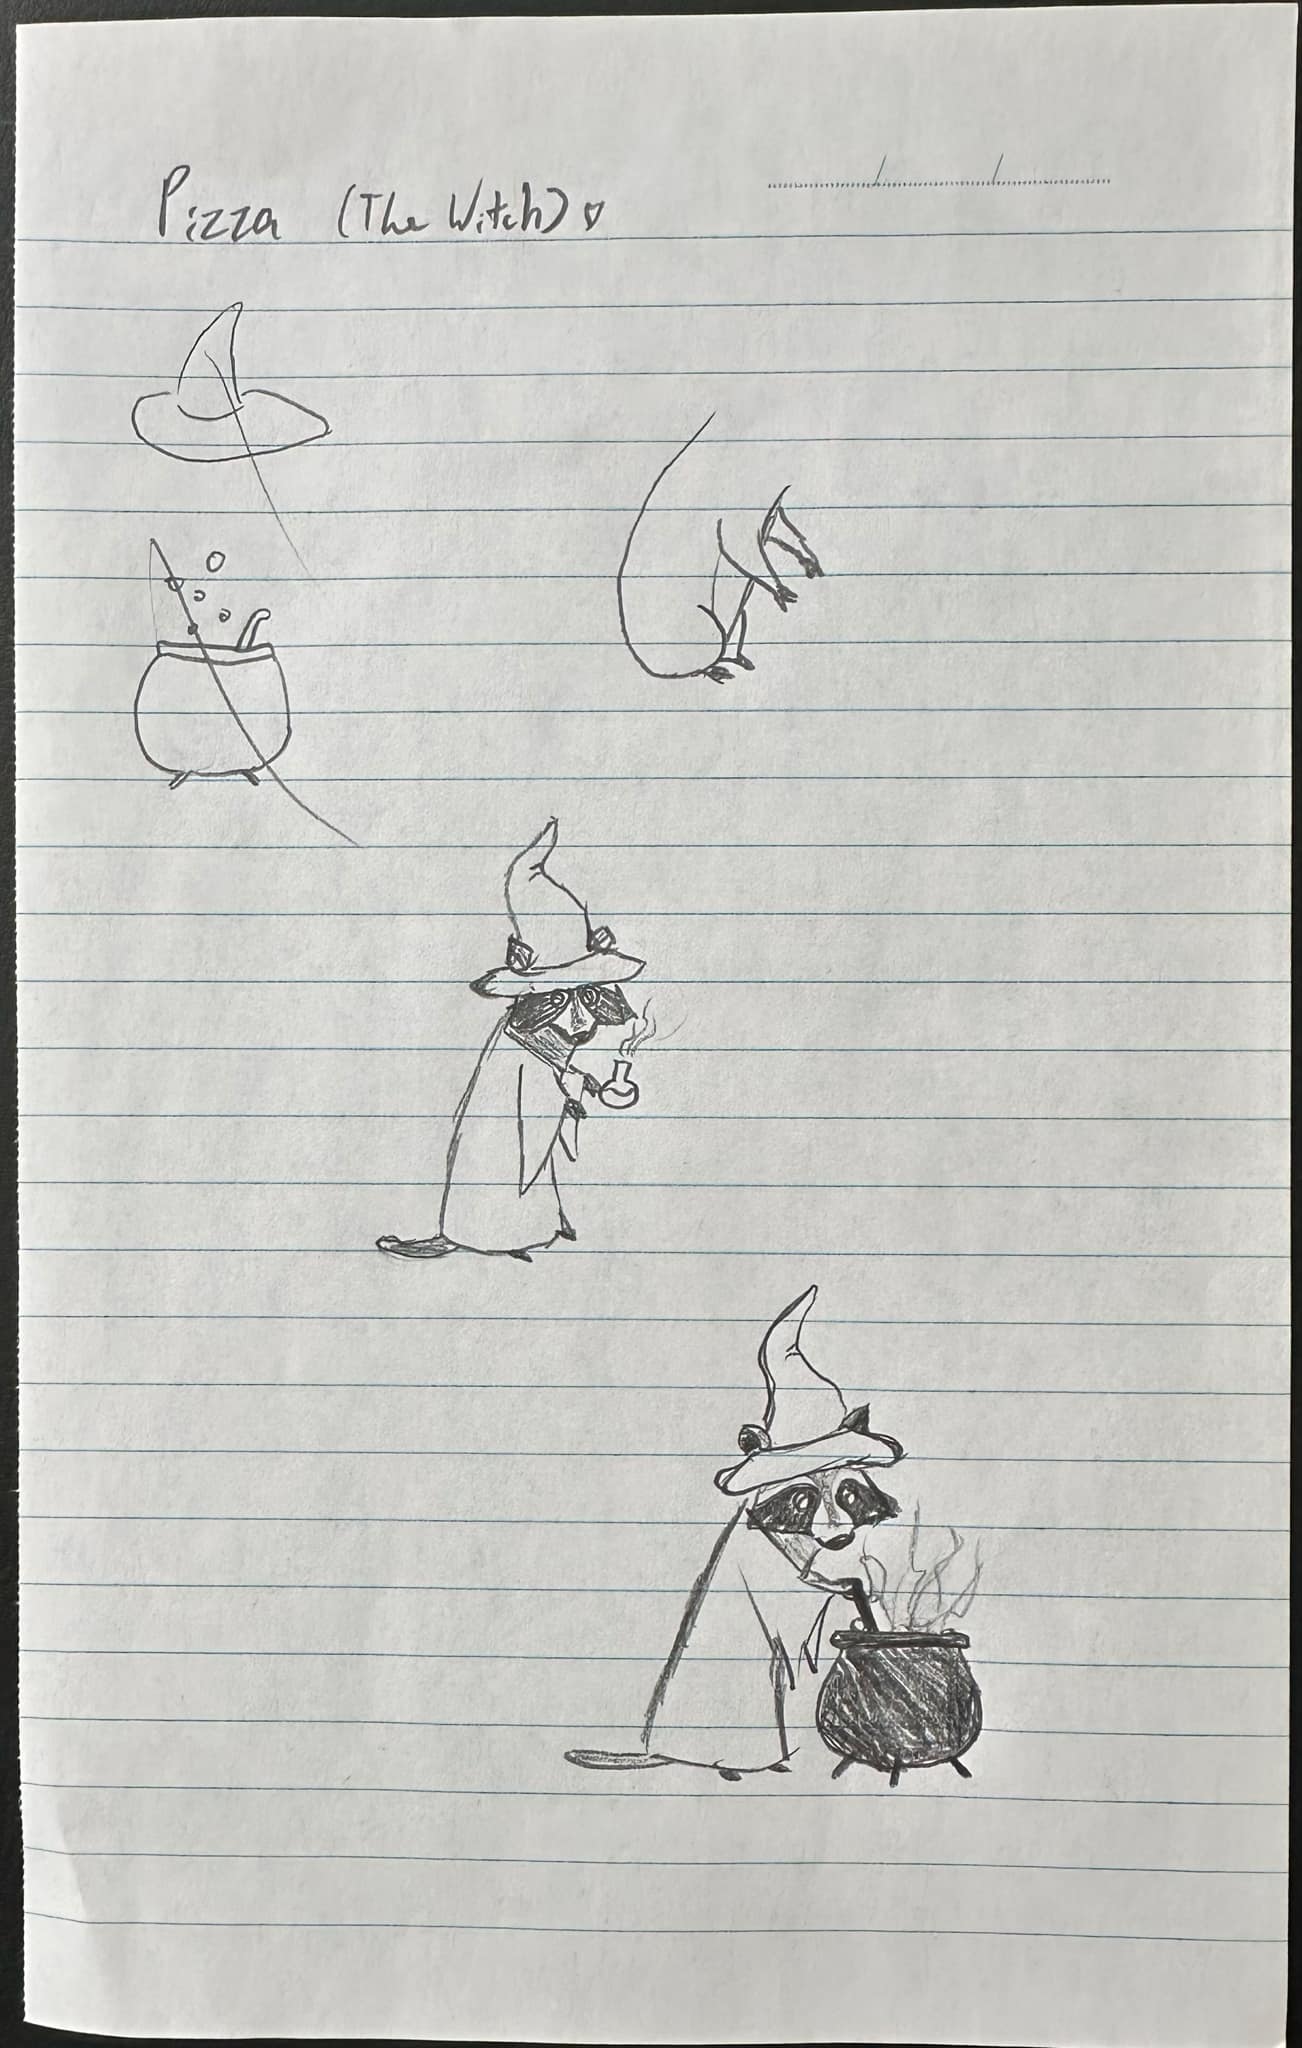 Pizza (The Witch)